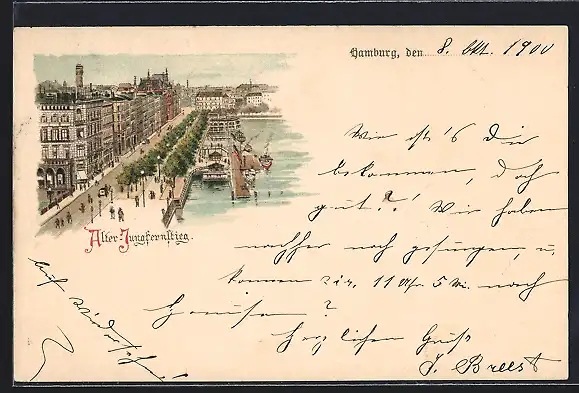 Hamburg, den 8. Okt. 1900
Alter-Jungfernstieg.
Wie ist's Dir
bekommen, doch
gut?! Wir haben
nachher noch gesungen, u.
kamen 11 Uhr 5 Mi. nach
Hause?
Herzlichen Gruß
J. Breest
Auf Wiedersehn!